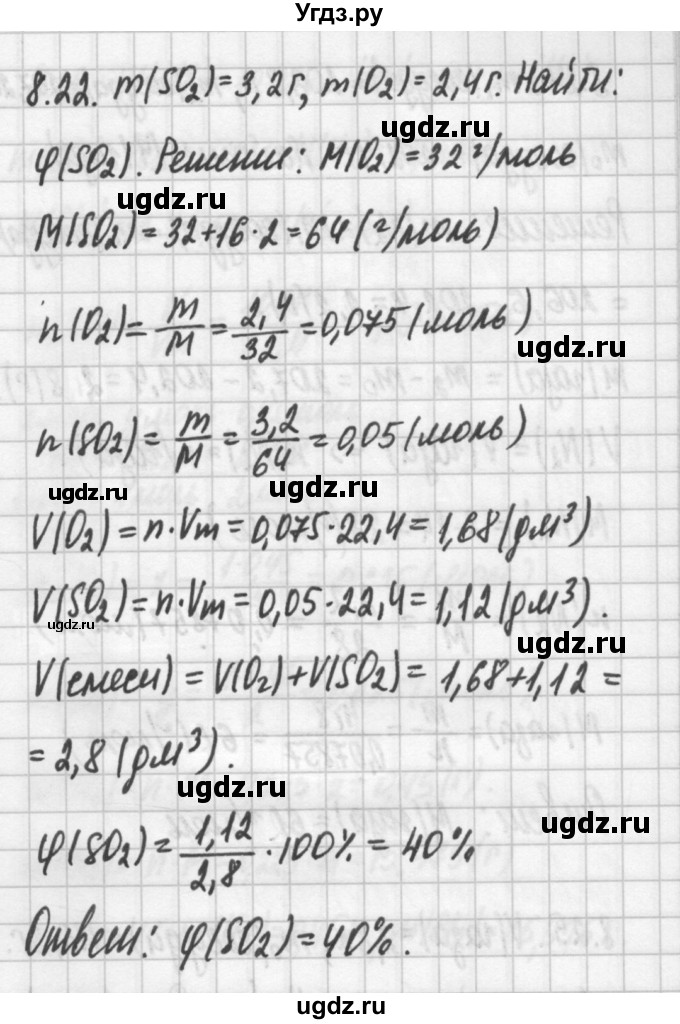 Угдз.ру
8.22. m(SO₂)=3,2г, m(O₂)=2,4г. Найти:
ugdz.ru
φ(SO₂). Решение: M(O₂)=32 г/моль
ugdz.ru
M(SO₂)=32+16·2=64(г/моль)
n(O₂)=m/M=2,4/32=0,075(моль)
ugdz.ru
n(SO₂)=m/M=3,2/64=0,05(моль)
ugdz.ru ugdz.ru
V(O₂)=n·Vm=0,075·22,4=1,68(дм³)
V(SO₂)=n·Vm=0,05·22,4=1,12(дм³).
ugdz.ru ugdz.ru
V(смеси)=V(O₂)+V(SO₂)=1,68+1,12=
=2,8(дм³).
ugdz.ru
φ(SO₂)=1,12/2,8·100%=40%
ugdz.ru
Ответ: φ(SO₂)=40%.
ugdz.ru
ugdz.ru